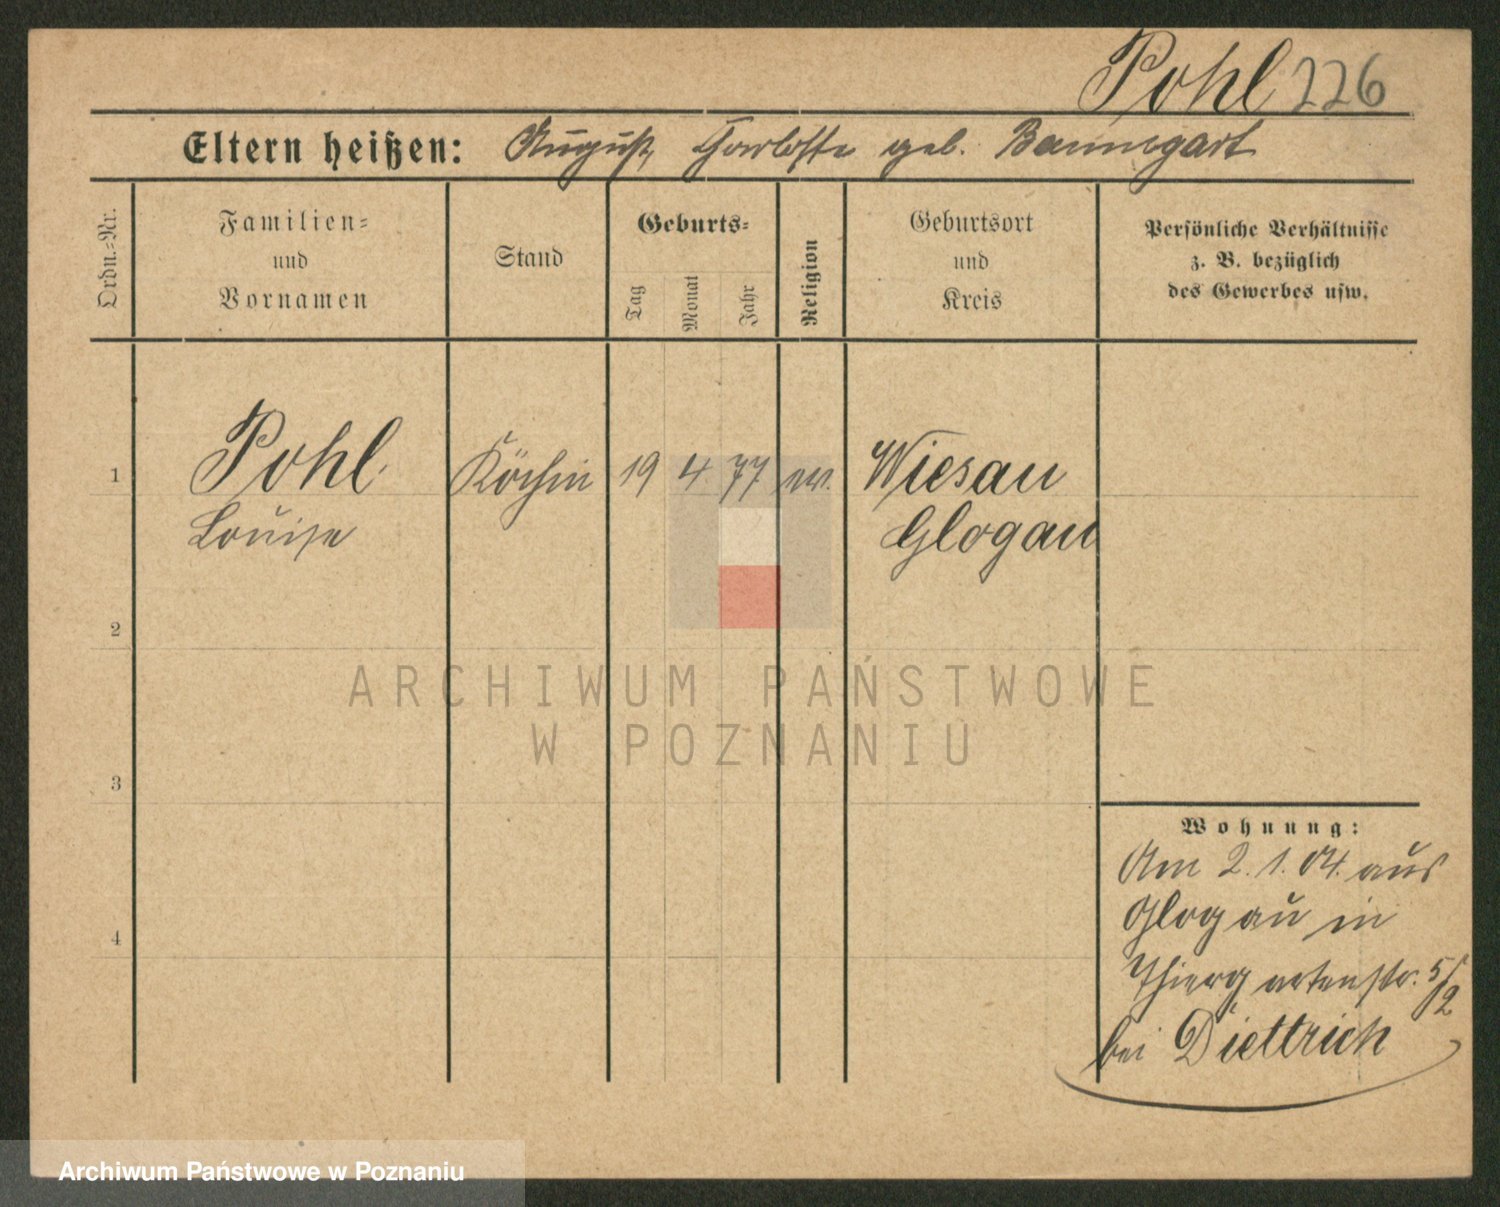 Pohl 226
Eltern heißen: August, Charlotte geb. Baumgart
Ordn.-Nr.
Familien-
und
Vornamen
Stand
Geburts-
Tag
Monat
Jahr
Religion
Geburtsort
und
Kreis
Persönliche Verhältnisse
z. B. bezüglich
des Gewerbes usw.
1 Pohl Köchin 19 4 77 ev. Wiesau
Louise Glogau
2
3
4
Wohnung:
Am 2. 1. 04. aus
Glogau in
Thiergartenstr. 5/2
bei Diettrich
ARCHIWUM PAŃSTWOWE
W POZNANIU
Archiwum Państwowe w Poznaniu